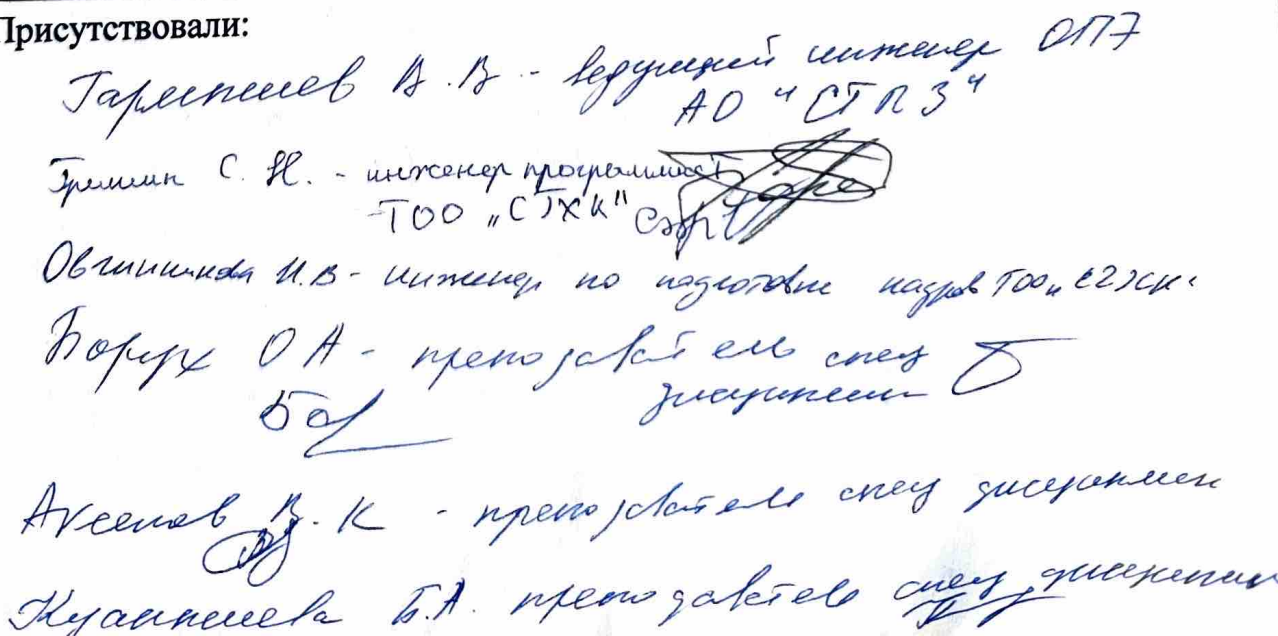 Присутствовали:
В.В - ведущий инженер ОП7
АО "СТПЗ"
С.Н. - инженер программист
-ТОО „СТХК"
Овчинникова И.В - инженер по подготовке кадров ТОО„
Борух О А - преподаватель спец
дисциплин
Аксенов В.К - преподаватель спец дисциплин
Куанышева Б.А. преподаватель спец дисциплин